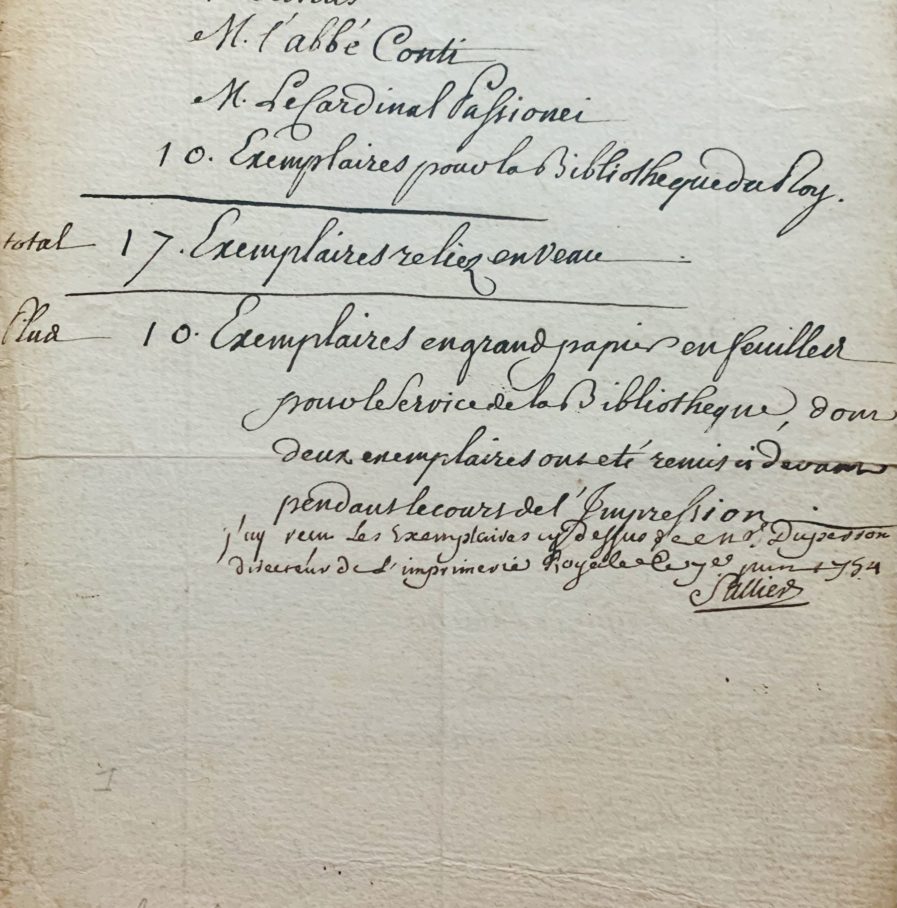 M. l'abbé Conti
M. Le Cardinal Passionei
10. Exemplaires pour la Bibliotheque du Roy.
total 17. Exemplaires reliez en Veau
Plus 10. Exemplaires en grand papier en feuilles
pour le Service de la Bibliotheque, dont
deux exemplaires ont eté remis ci devant
pendant le cours de l'Impression
j'ay receu Les Exemplaires cy dessus de Mr. Duperron
directeur de L'imprimerie Royale Ce 7e juin 1754
Sallier